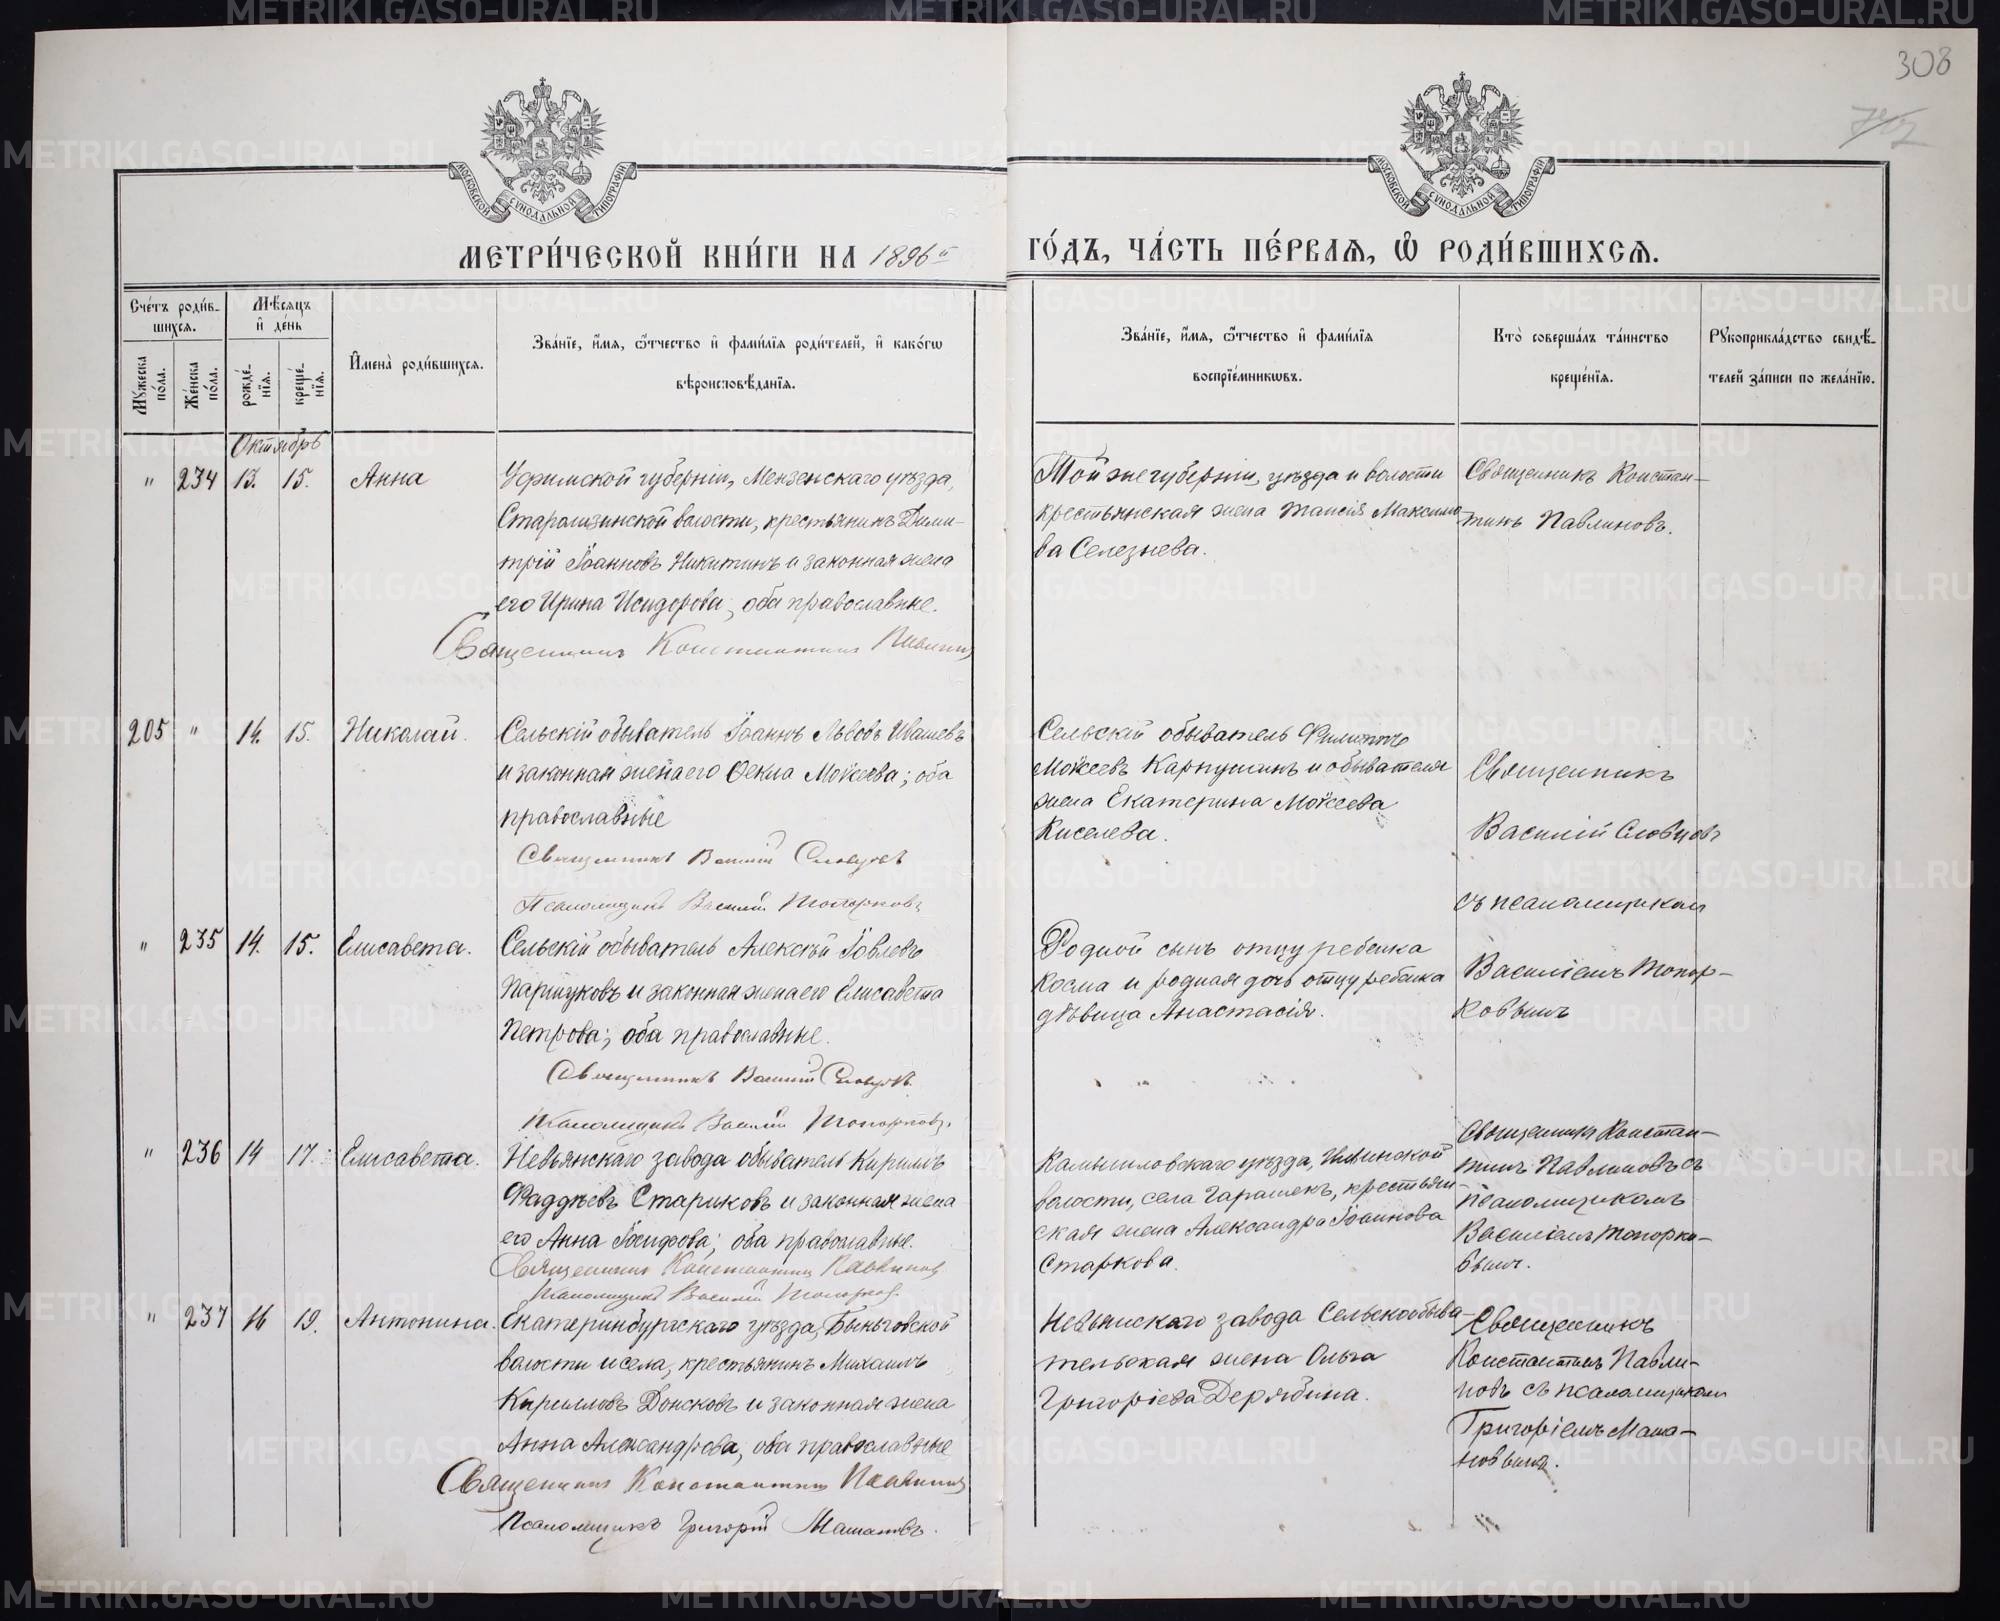 308
742
МОСКОВСКОЙ СѴНОДАЛЬНОЙ ТИПОГРАФІИ
МОСКОВСКОЙ СѴНОДАЛЬНОЙ ТИПОГРАФІИ
МЕТРИ́ЧЕСКОЙ КНИ́ГИ НА 1896й
ГО́ДЪ, ЧА́СТЬ ПЕ́РВАЯ, Ѡ҆ РОДИ́ВШИХСЯ.
Сче́тъ роди́в-
шихся.
Мꙋ́жеска по́ла.
Же́нска по́ла.
Мѣ́сяцъ
и҆ де́нь
рожде́-
нїя.
креще́-
нїя.
И҆мена̀ роди́вшихся.
Зва́нїе, и҆́мя, ѻ҆́тчество и҆ фами́лїя роди́телей, и҆ како́гѡ
вѣроисповѣ́данїя.
Зва́нїе, и҆́мя, ѻ҆́тчество и҆ фами́лїя
воспрїе́мникѡвъ.
Кто̀ соверша́лъ та́инство
креще́нїя.
Рꙋкоприкла́дство свидѣ́-
телей за́писи по жела́нїю.
Октябрь
" 234 13. 15. Анна
Уфимской губерніи, Мензенскаго уѣзда,
волости, крестьянинъ Дими-
трій Іоанновъ Никитинъ и законная жена
его Ирина Исидорова, оба православные.
Священникъ Константинъ Павлинов
Той же губерніи, уѣзда и волости
крестьянская жена Таисія Максимо
ва Селезнева.
Священникъ Констан-
тинъ Павлиновъ.
205 " 14. 15. Николай.
Сельскій обыватель Іоаннъ Львовъ Ивашевъ
и законная жена его Ѳекла Моѵсеева; оба
православные
Священникъ Василій Словцовъ
Псаломщикъ Василій Топорковъ
Сельскій обыватель Филиппъ
Моѵсеевъ Карпушинъ и обывателя
жена Екатерина Моѵсеева
Киселева.
Священникъ
Василій Словцовъ
съ псаломщикомъ
Василіемъ Топор-
ковымъ
" 235 14. 15. Елисавета.
Сельскій обыватель Алексѣй Іовлевъ
Паршуковъ и законная жена его Елисавета
Петрова; оба православные.
Священникъ Василій Словцовъ.
Псаломщикъ Василій Топорковъ.
Родной сынъ отцу ребенка
Косма и родная дочь отцу ребенка
дѣвица Анастасія.
" 236 14 17. Елисавета.
Невьянскаго завода обыватель Кириллъ
Фаддѣевъ Стариковъ и законная жена
его Анна Іосифова; оба православные.
Священникъ Константинъ Павлинов
Псаломщикъ Василій Топорков.
Камышловскаго уѣзда,
волости, села Гарашекъ, крестьян
ская жена Александра Іоаннова
Старкова.
Священникъ Констан-
тинъ Павлиновъ съ
псаломщикомъ
Василіемъ Топорко-
вымъ.
" 237 16 19. Антонина.
Екатеринбургскаго уѣзда, Быньговской
волости и села, крестьянинъ Михаилъ
Кирилловъ Донсковъ и законная жена
Анна Александрова, оба православные
Священникъ Константинъ Павлинов
Псаломщикъ Григорій Машановъ.
Невьянскаго завода Сельскообыва-
тельская жена Ольга
Григоріева Дерябина.
Священникъ
Константинъ Павли-
новъ съ псаломщикомъ
Григоріемъ Маша-
новымъ.
METRIKI.GASO-URAL.RU